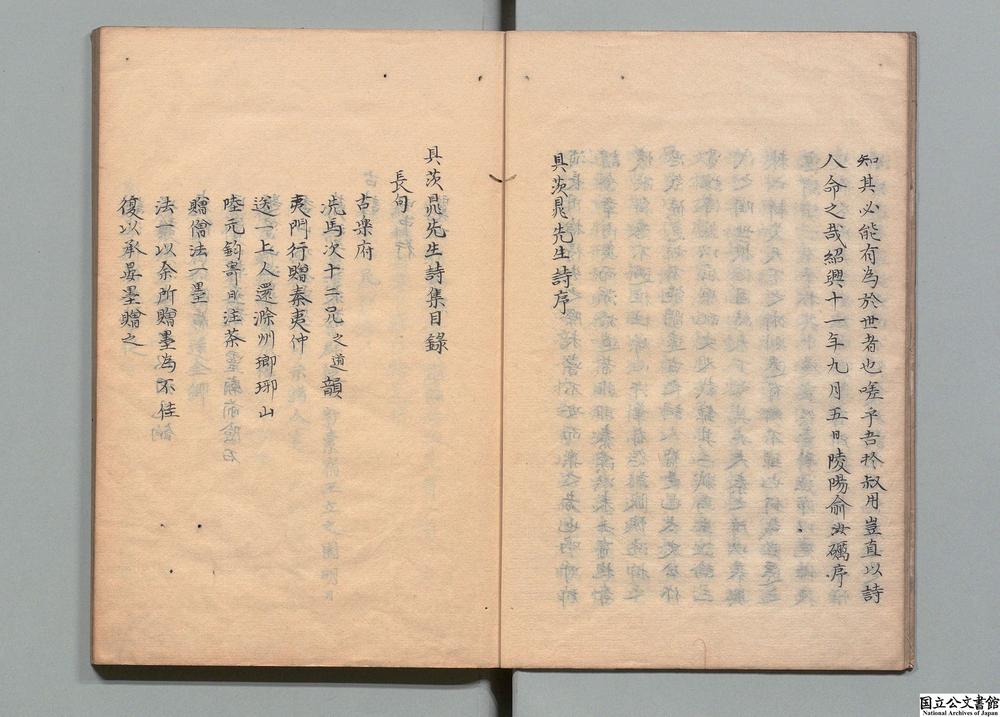 知其必能有為於世者也嗟乎吾於叔用豈直以詩
人命之哉紹興十一年九月五日陵陽俞汝礪序
具茨晁先生詩序
具茨晁先生詩集目錄
長句
古樂府
冼馬次十二兄之道韻
夷門行贈秦夷仲
送一上人還滁州瑯琊山
陸元鈞寄日注茶
贈僧法一墨
法一以余所贈墨為不佳
復以承晏墨贈之
国立公文書館
National Archives of Japan